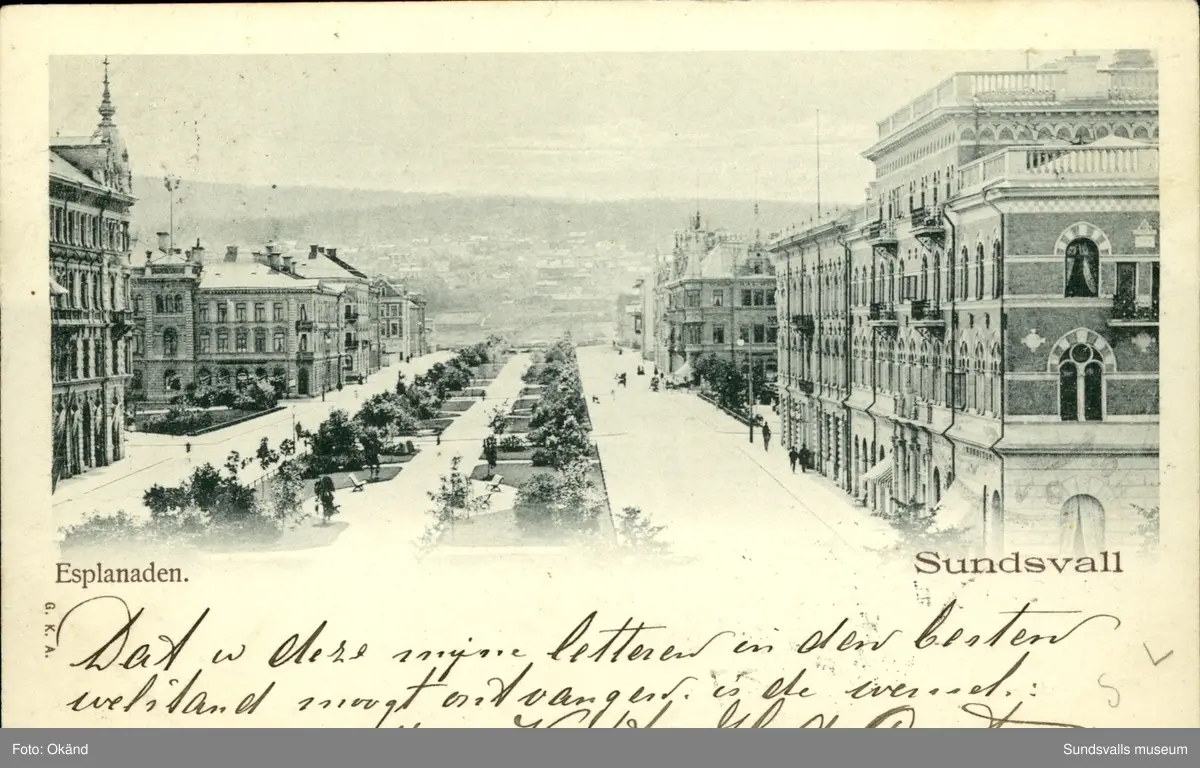 Esplanaden.
Sundsvall
G. K. A.
Dat u deze mijne letteren in den besten
welstand moogt ontvangen. is de wensch:
Foto: Okänd
Sundsvalls museum